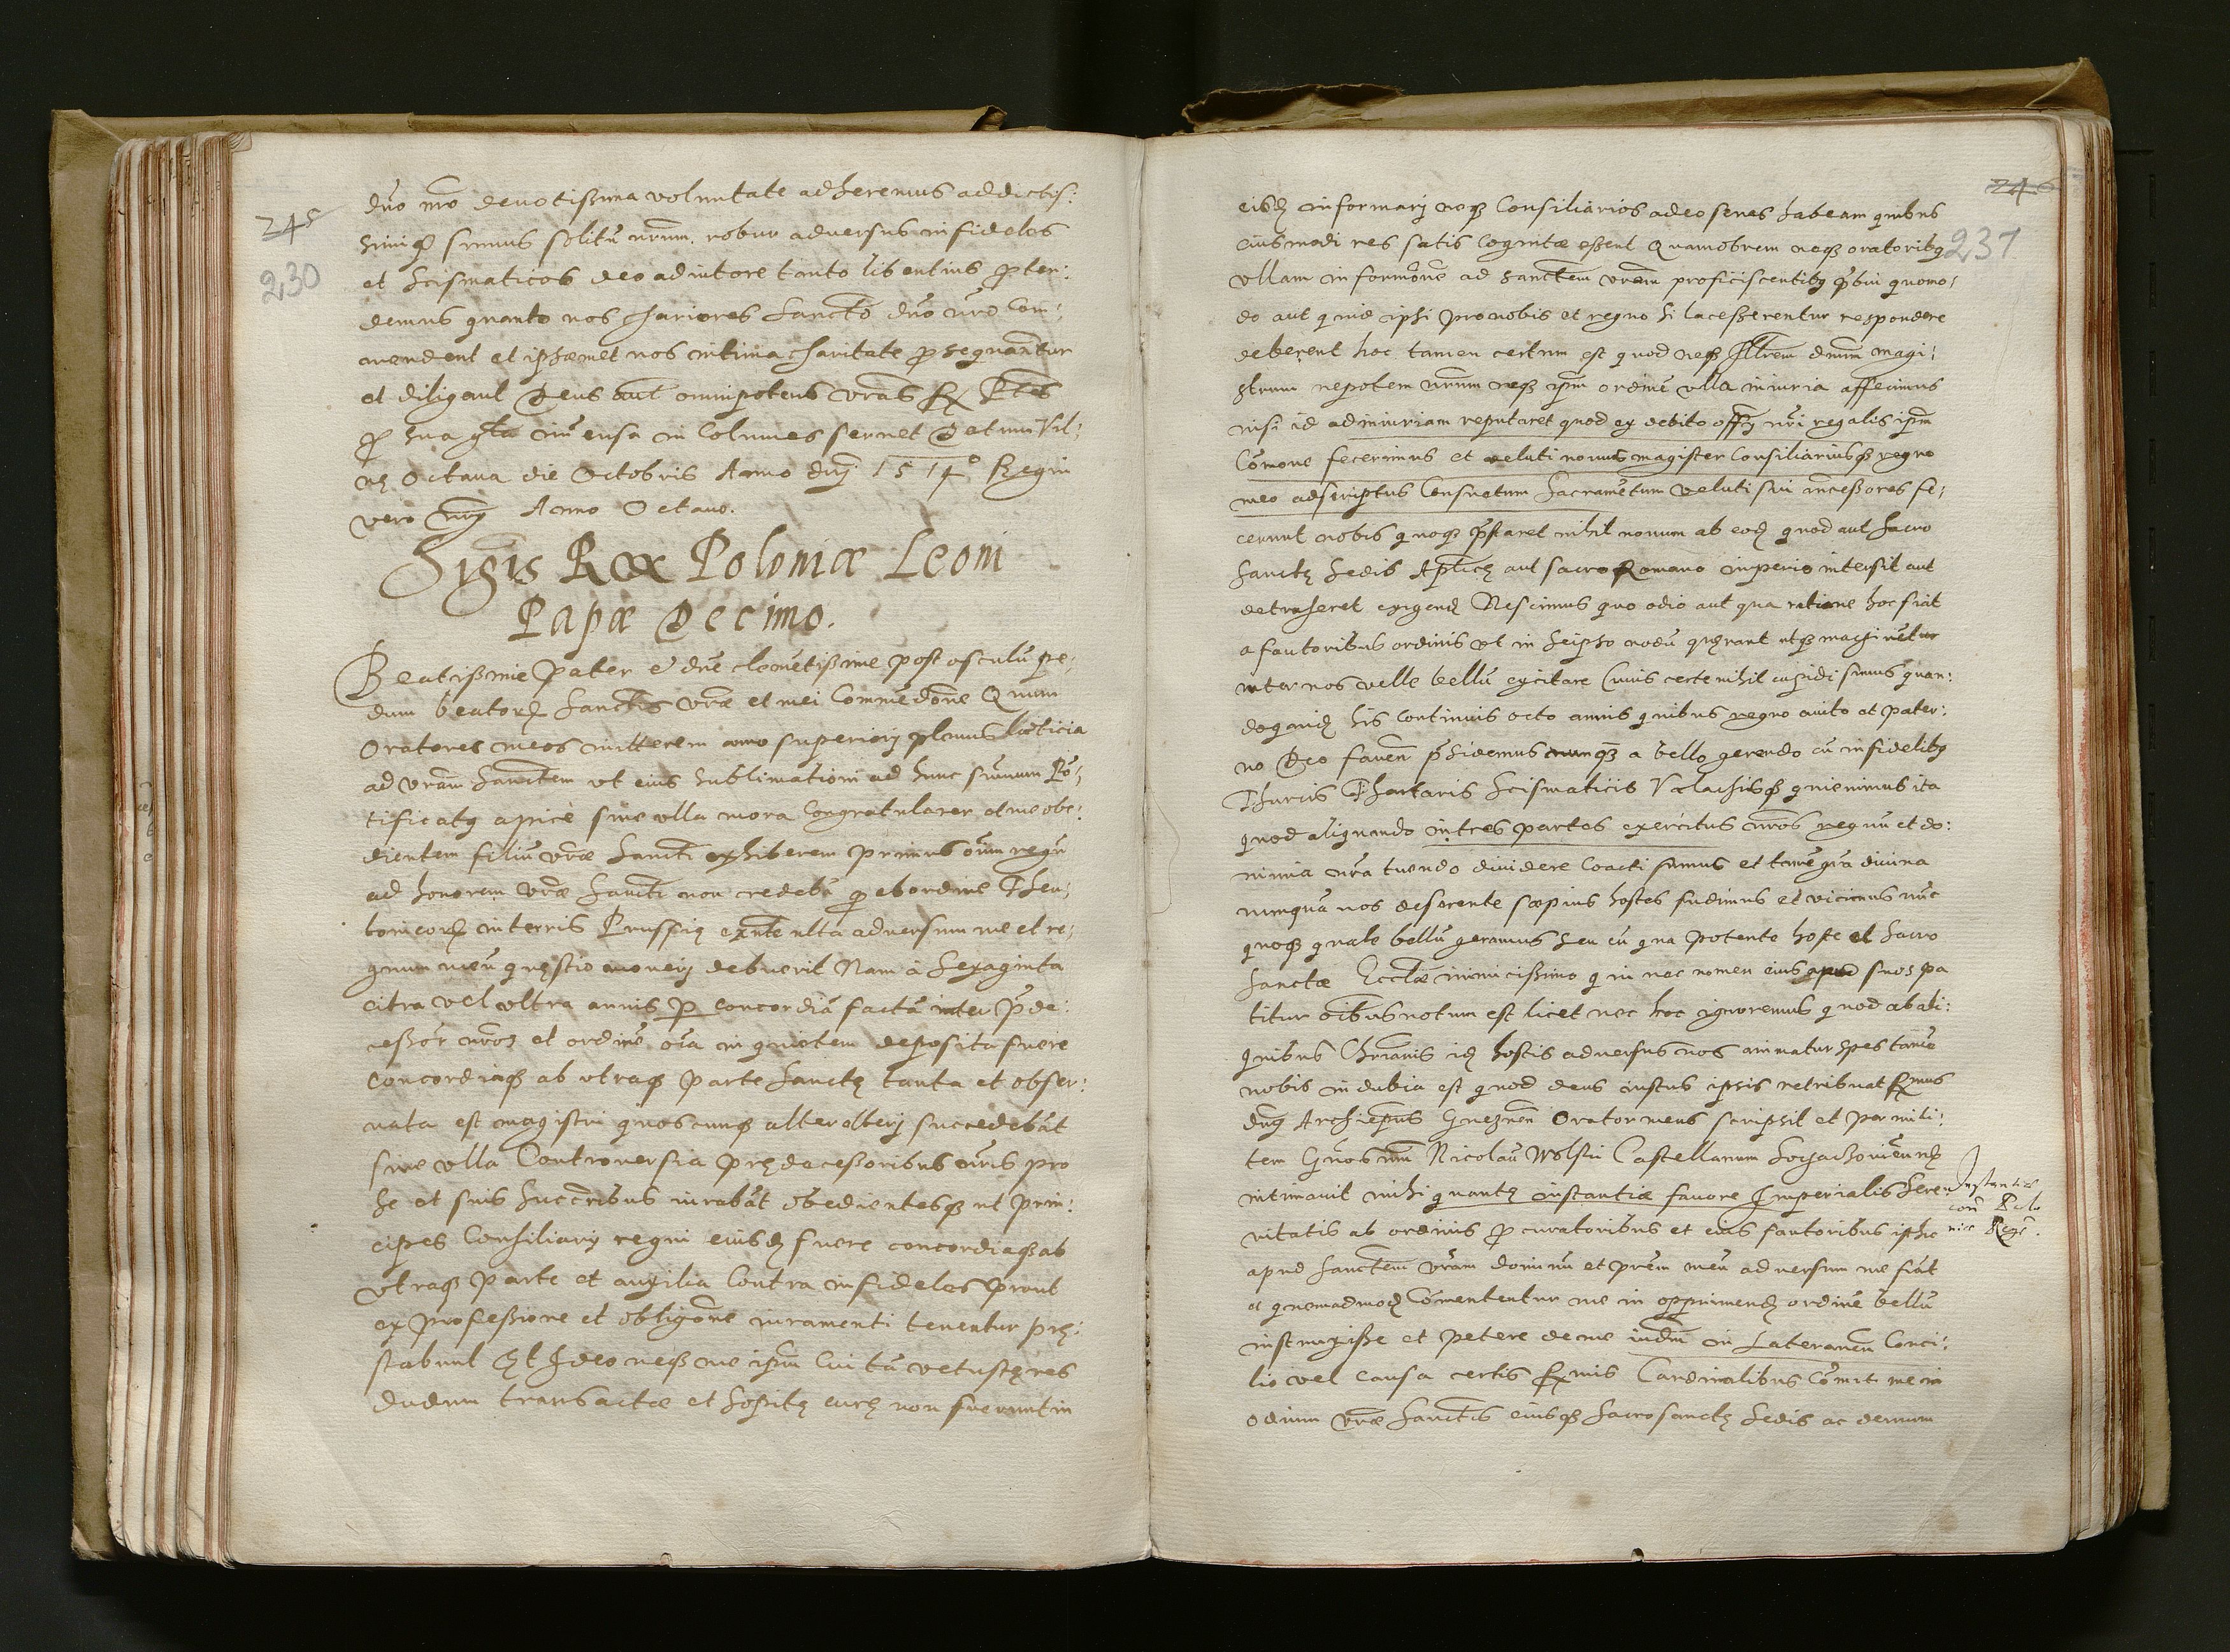 245
230
dno mo deuotissima voluntate adheremus addictis:
simiq simus solitu nrum robur aduersus infideles
et Scismaticos deo adiutore tanto libentius pten:
demus quanto nos chariores Sancto dno nro Com:
mendent et ipsaemet nos intima charitate psequantur
et diligant Deus aut omnipotens vras Rx Ptes
p sua gtia imensa in Columes seruet Dat in Vil:
ne Octaua die Octobris Anno dnj 1514º Regni
vero nrj Anno Octauo.
Sigis Rex Poloniae Leoni
Papae Decimo.
Beatissime Pater et dne clemetissime post osculu pe:
dum beatorz Sanctis vrae et mei Commedone Quum
Oratores meos mitterem anno superiorj plenus laeticia
ad vram Sanctem ut eius sublimationi ad hunc sumum Po:
tificatq apice sine ulla mora Congratularer et me obe:
dientem filiu vrae Sancti exhiberem primus oium regu
ad honorem vrae Sancti non credeba q ob ordine Theu:
tonicorz in terris Prussię exnte ulta aduersum me et re:
gnum meu quęstio moueri debuerit Nam a Sexaginta
citra vel ultra annis p concordia facta inter pde:
cessor nros et ordine oia in quietem deposita fuere
Concordiaqz ab utraqz parte Sanctę tanta et obser:
uata est magistri quoscunqz alter alterj succedebat
sine ulla Controuersia pręedecessoribus nris pro
se et suis Succribus iurabat obedientesqz ut prin:
cipes Consiliarij regni eiusdz fuere concordiaqz ab
utraqz parte et auxilia Contra infideles prout
ex professione et obligone iuramenti tenentur prę:
stabunt Et Ideo neqz me ipsum Cui ta vetustę res
dudum transactae et sopitę curę non fuerunt in
246
231
eisdz informarj neqz Consiliarios adeo senes habeam quibus
eiusmodi res satis Cognitae essent Quamobrem neqz oratoribq
ullam informone ad Sanctem vram proficiscentibq pbui quomo:
do aut quid ipsi pro nobis et regno si lacesserentur respondere
deberent hoc tamen certum est quod neqz Illrem dnum magi:
strum nepotem nrum neqz ipsm ordine ulla iniuria affecimus
nisi id ad iniuriam reputaret quod ex debito offij nri regalis ipsm
Comone fecerimus et veluti nouus magister Consiliariusqz regno
meo adscriptus Consuetum Sacrametum veluti sui ancessores fe:
cerunt nobis quoqz pstaret nihil nouum ab eodz quod aut Sacro
Sanctę Sedis Aplicę aut sacro Romano imperio intersit aut
detraheret exigendz Nescimus quo odio aut qua ratione hoc fiat
a fautoribus ordinis ut in scirpo nodu quęrant utqz machinetur
inter nos velle bellu excitare Cuius certe nihil cupidi simus quan:
doquidz his continuis octo annis quibus regno auito et pater:
no Deo fauen psidemus nunqz a bello gerendo cu infidelibq
Thurcis Thartaris Scismaticis Valachisqz quieuimus ita
quod aliquando in tres partes exercitus nros regnu et do:
minia nra tuendo diuidere Coacti fuimus et tame gra diuina
nunqua nos deserente saepius hostes fudimus et vicimus nuc
quoqz quale bellu geramus seu cu qua potente hoste et Sacro
Sanctae Eccliae inimicissimo qui nec nomen eius apud suos pa
titur oibus notum est licet nec hoc ignoremus quod ab ali:
quibus Chrianis idz hostis aduersus nos animatur spes tame
nobis indubia est quod deus iustus ipsis retribuat Rxmus
dnq Archiepus Gneznen Orator meus scripsit et per mili:
tem Gnosum Nicolau Wolski Castellanum Sochaczouien
intimauit mihi quantę instantiae fauore Imperialis Sere
nitatis ab ordinis pcuratoribus et eius fautoribus isthic
apud Sanctem vram dominu et prem meu aduersum me fiat
et quemadmodz Comententur me in opprimendz ordine bellu
instruxisse et petere de me iudm in Lateranen Conci:
lio vel Causa certis Rxmis Cardinalibus Comit me in
odium vrae Sanctis eiusqz Sacrosanctę Sedis ac demum
Instantiae
con Polo
niae Rege.